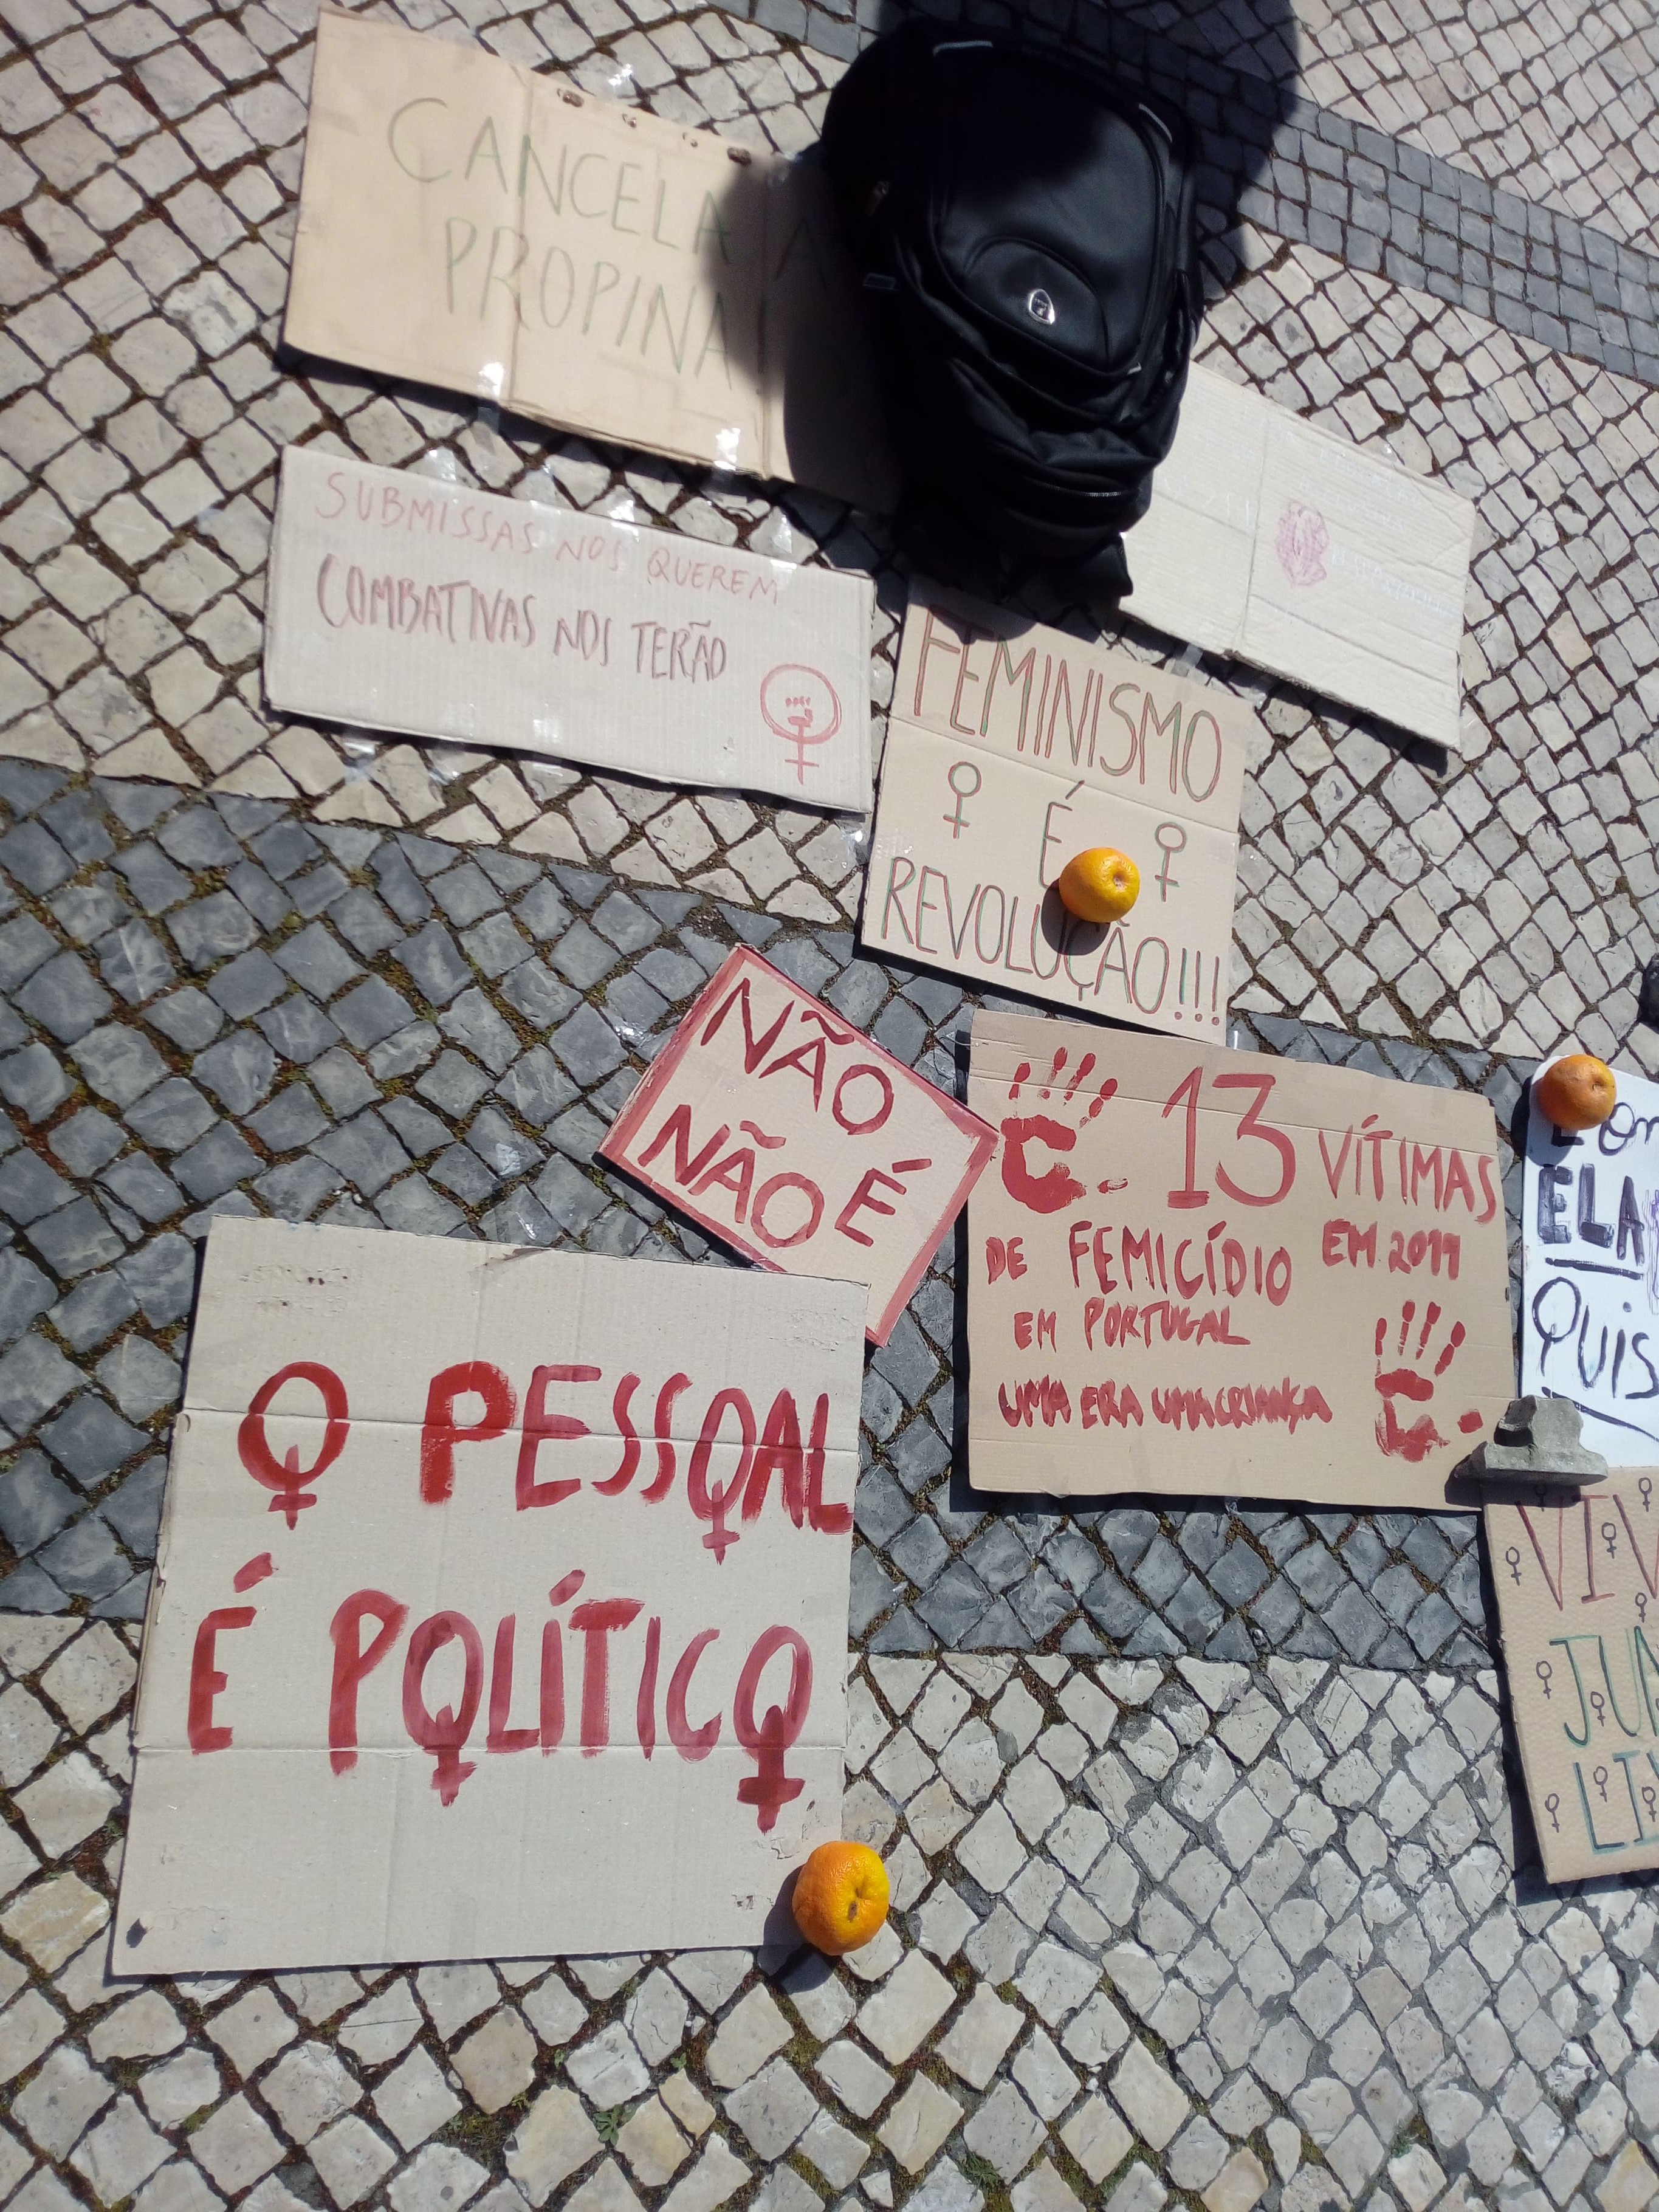 CANCELA A
PROPINA
SUBMISSAS NOS QUEREM
COMBATIVAS NOS TERÃO
FEMINISMO
É
REVOLUÇÃO!!!
NÃO
NÃO É
13 VÍTIMAS
DE FEMICÍDIO EM 2019
EM PORTUGAL
UMA ERA UMA CRIANÇA
O PESSOAL
É POLÍTICO
ELA
QUIS
VIV
JUN
LIV